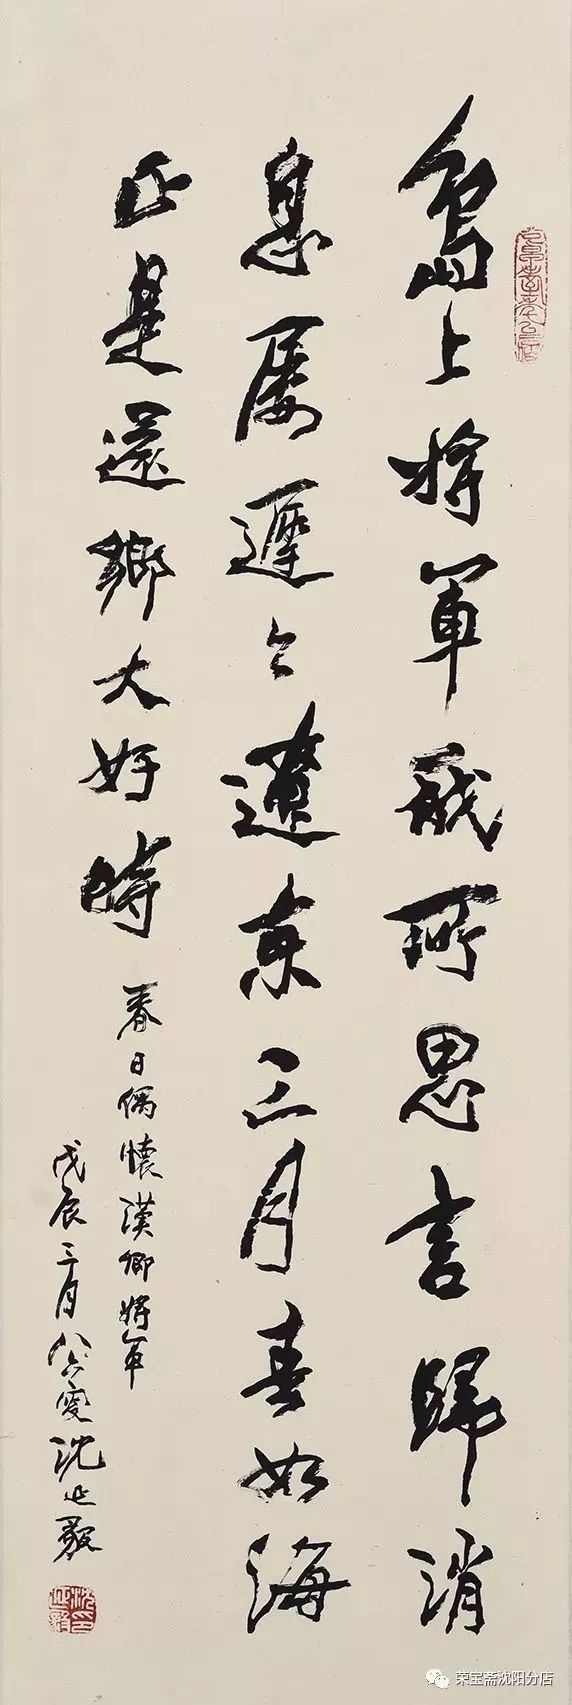 島上將軍我所思言歸消
息屢遲〻遼東三月春如海
正是還鄉大好時
春日偶懷漢卿將軍
戊辰三月八六叟沈延毅
荣宝斋沈阳分店